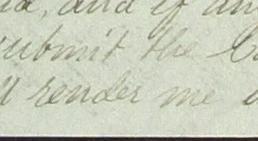 and if an
submit the
render me